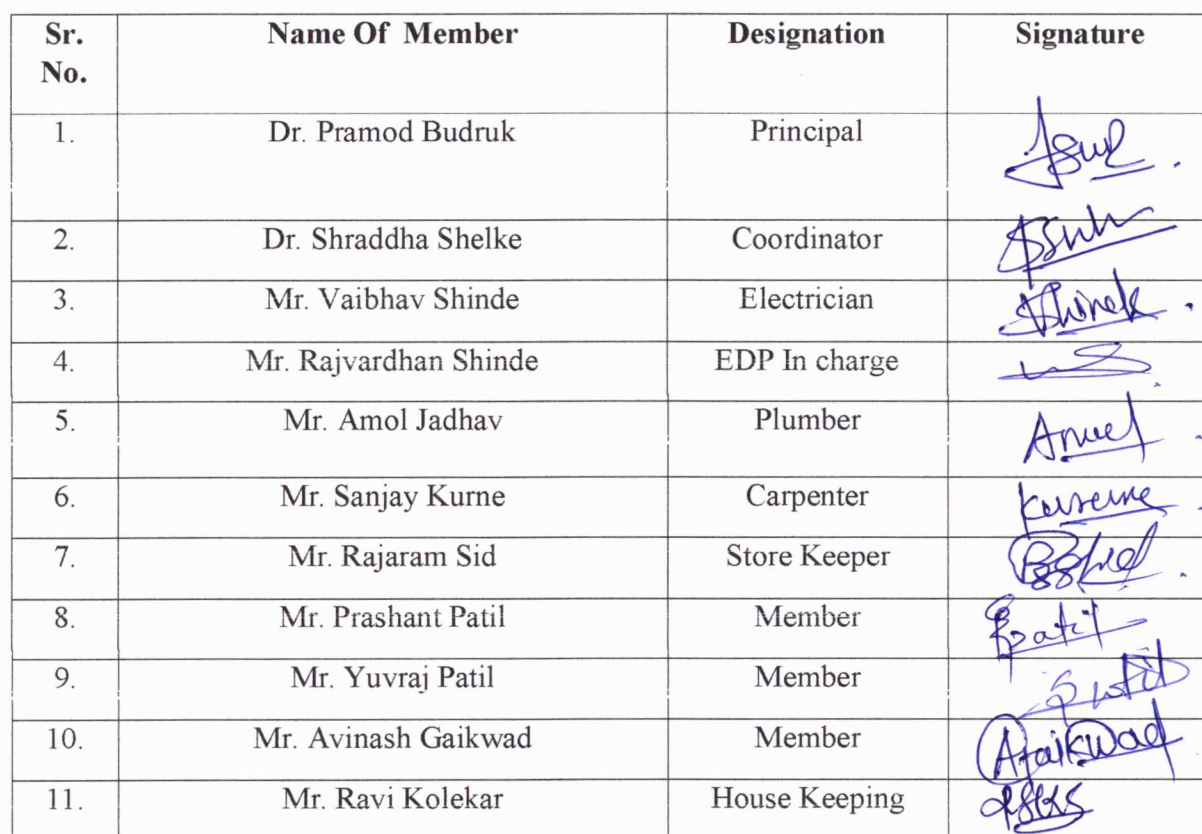 Sr. No. Name Of Member Designation Signature
1. Dr. Pramod Budruk Principal
2. Dr. Shraddha Shelke Coordinator
3. Mr. Vaibhav Shinde Electrician
4. Mr. Rajvardhan Shinde EDP In charge
5. Mr. Amol Jadhav Plumber
6. Mr. Sanjay Kurne Carpenter
7. Mr. Rajaram Sid Store Keeper
8. Mr. Prashant Patil Member
9. Mr. Yuvraj Patil Member
10. Mr. Avinash Gaikwad Member
11. Mr. Ravi Kolekar House Keeping